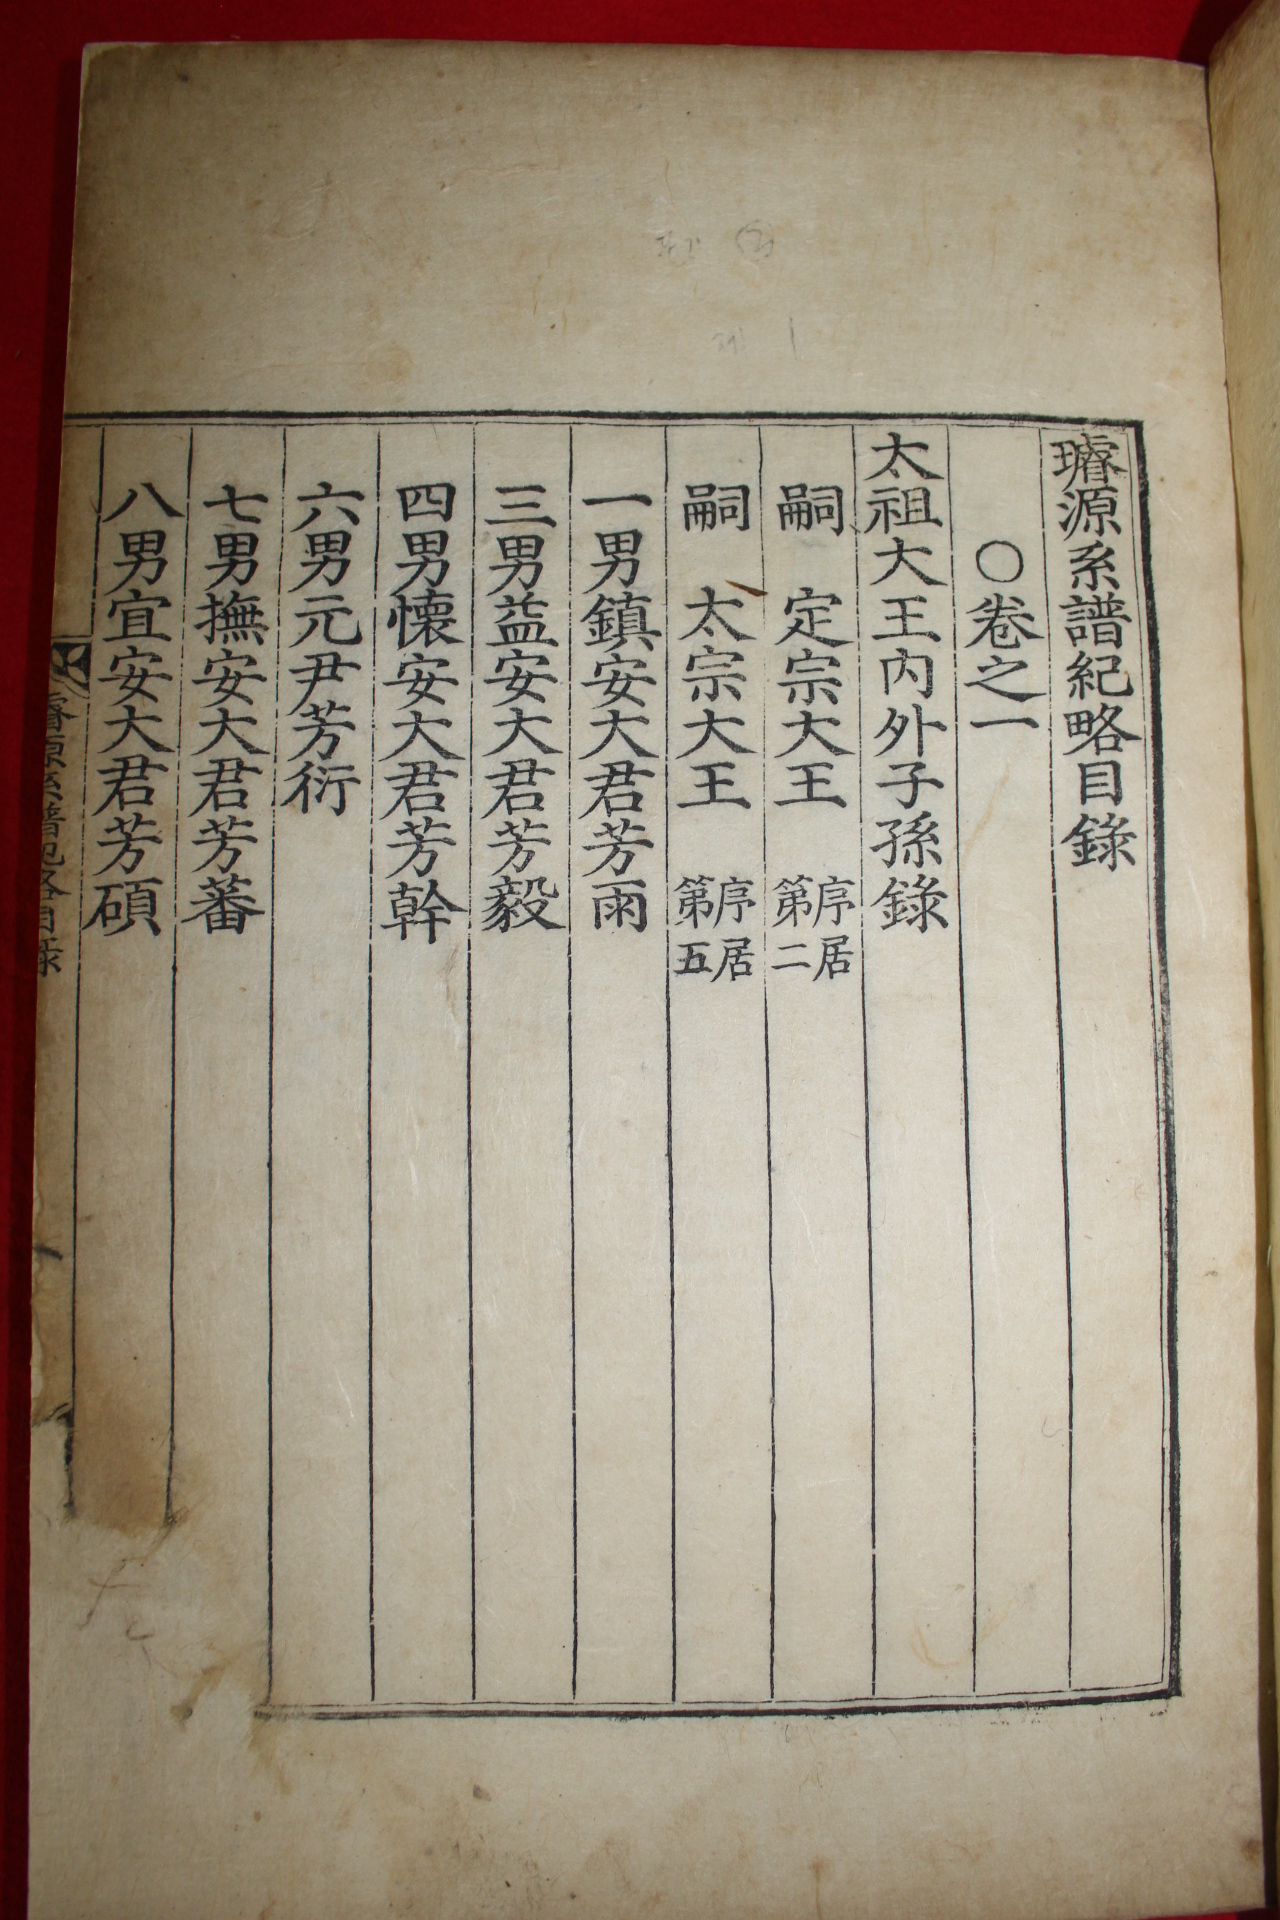 璿源系譜紀略目錄
○卷之一
太祖大王內外子孫錄
嗣 定宗大王 序居第二
嗣 太宗大王 序居第五
一男鎮安大君芳雨
三男益安大君芳毅
四男懷安大君芳幹
六男元尹芳衍
七男撫安大君芳蕃
八男宜安大君芳碩
璿源系譜紀略目錄